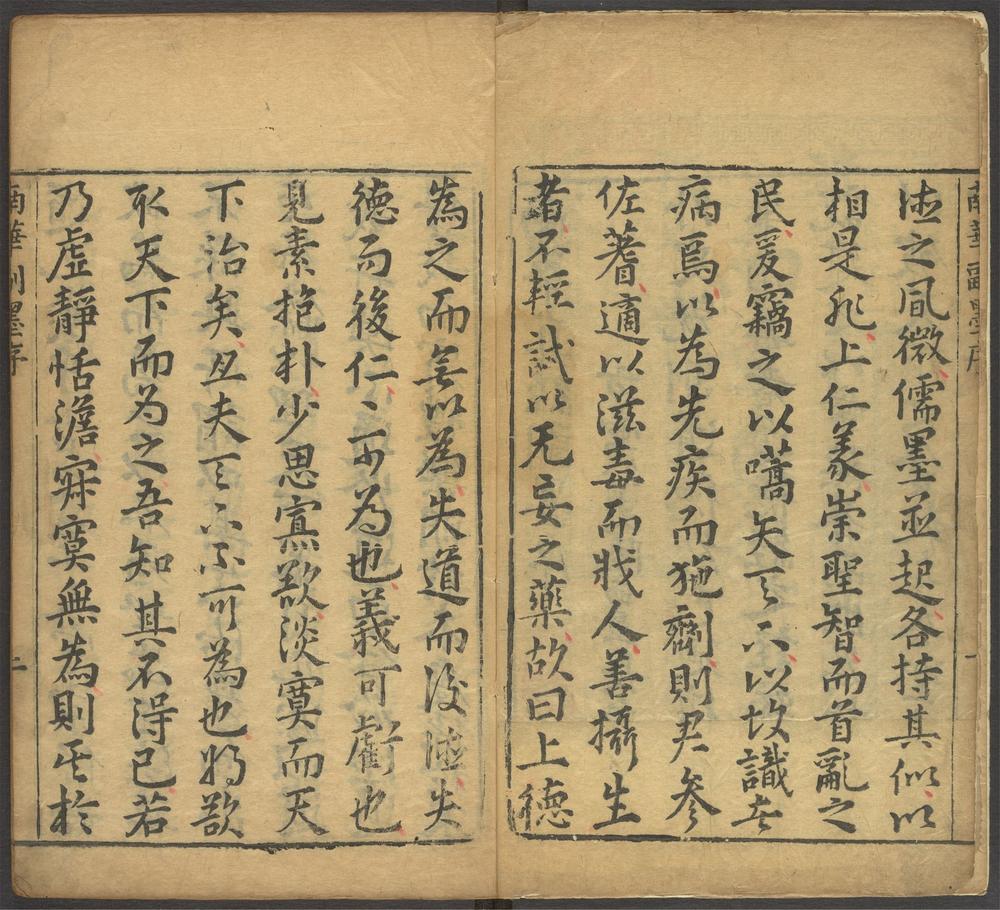 南華副墨序
一
法之風微儒墨並起各持其似以
相是非上仁義崇聖智而首亂之
民爰竊之以嚆矢天下以故識者
病焉以為先疾而施劑則君參
佐蓍適以滋毒而戕人善攝生
者不輕試以无妄之藥故曰上德
為之而無以為失道而後德失
德而後仁〻可為也義可虧也
見素抱朴少思寡欲淡寞而天
下治矣且夫天下不可為也將欲
取天下而为之吾知其不得已若
乃虛靜恬澹寂寞無為則其於
南華副墨序
二